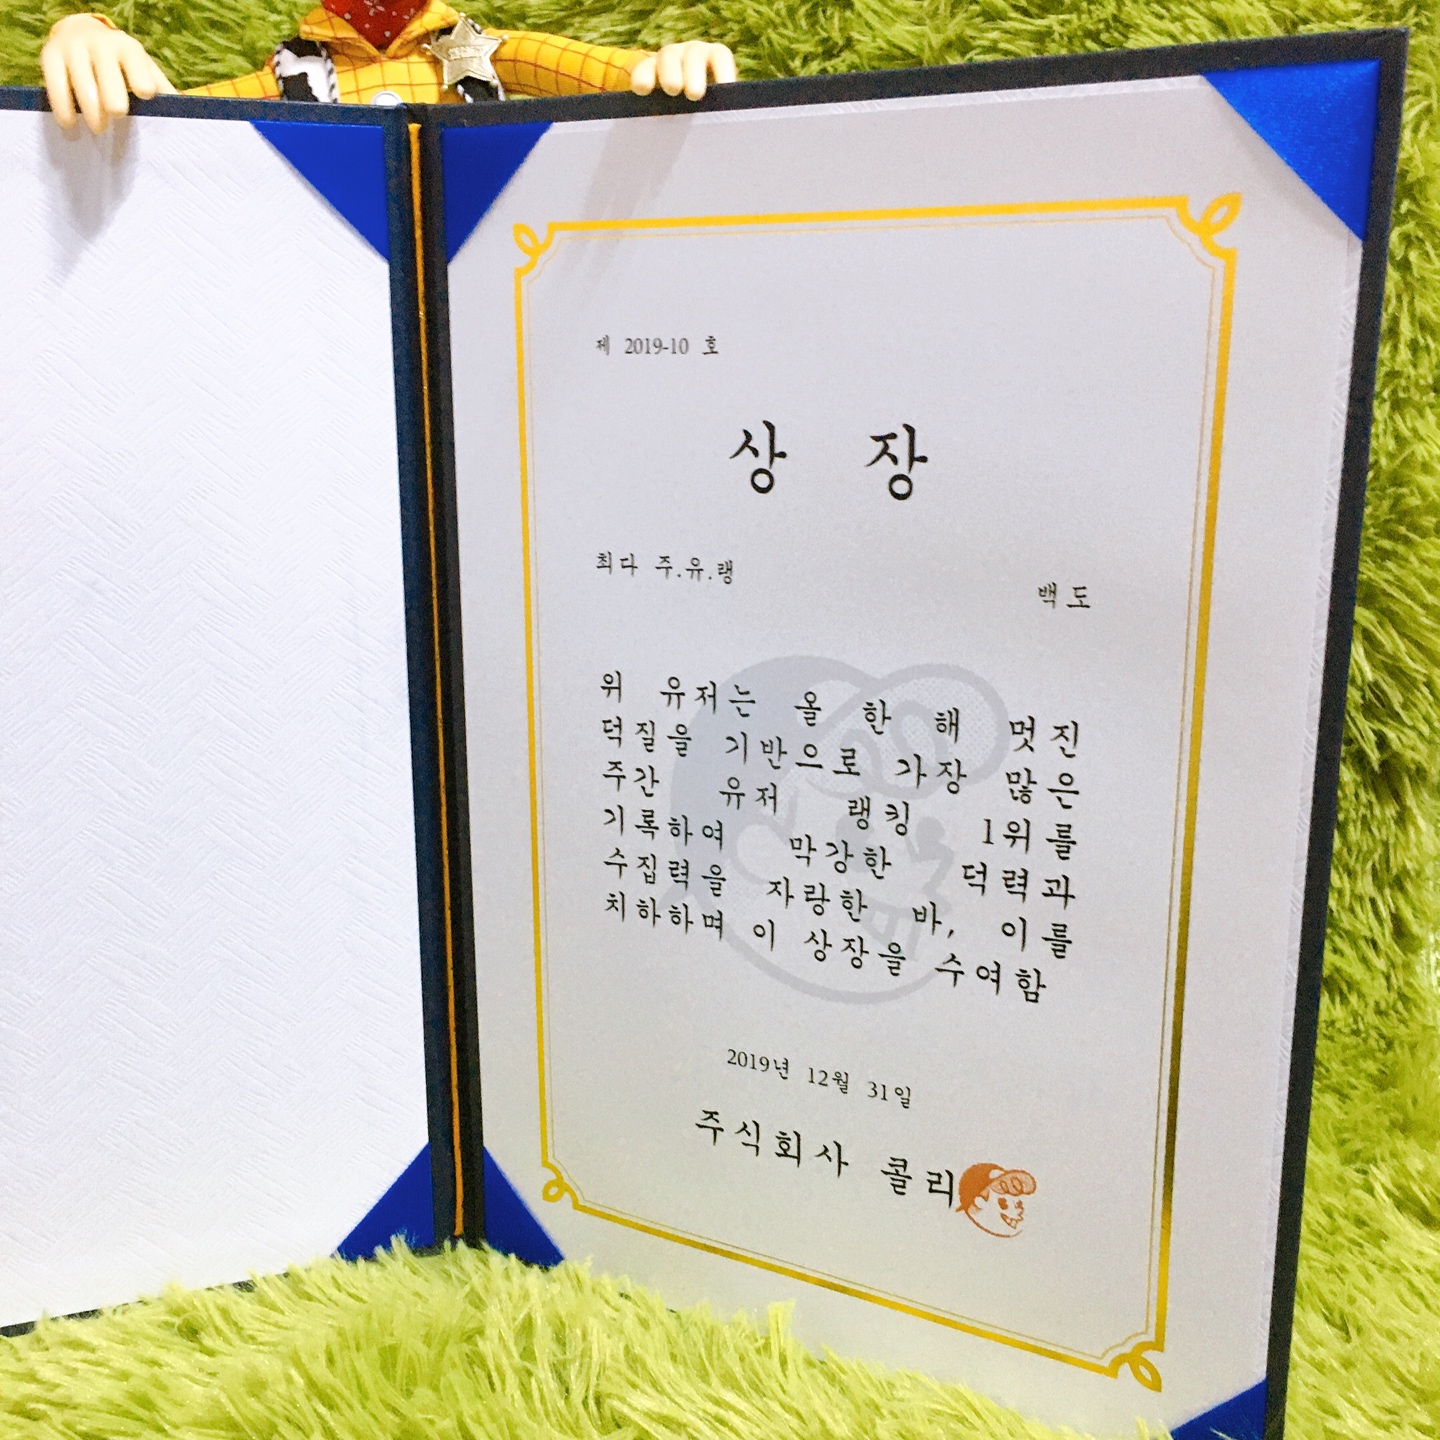 제 2019-10 호
상 장
최다 주.유.랭
백도
위 유저는 올 한 해 멋진
덕질을 기반으로 가장 많은
주간 유저 랭킹 1위를
기록하여 막강한 덕력과
수집력을 자랑한 바, 이를
치하하며 이 상장을 수여함
2019년 12월 31일
주식회사 콜리